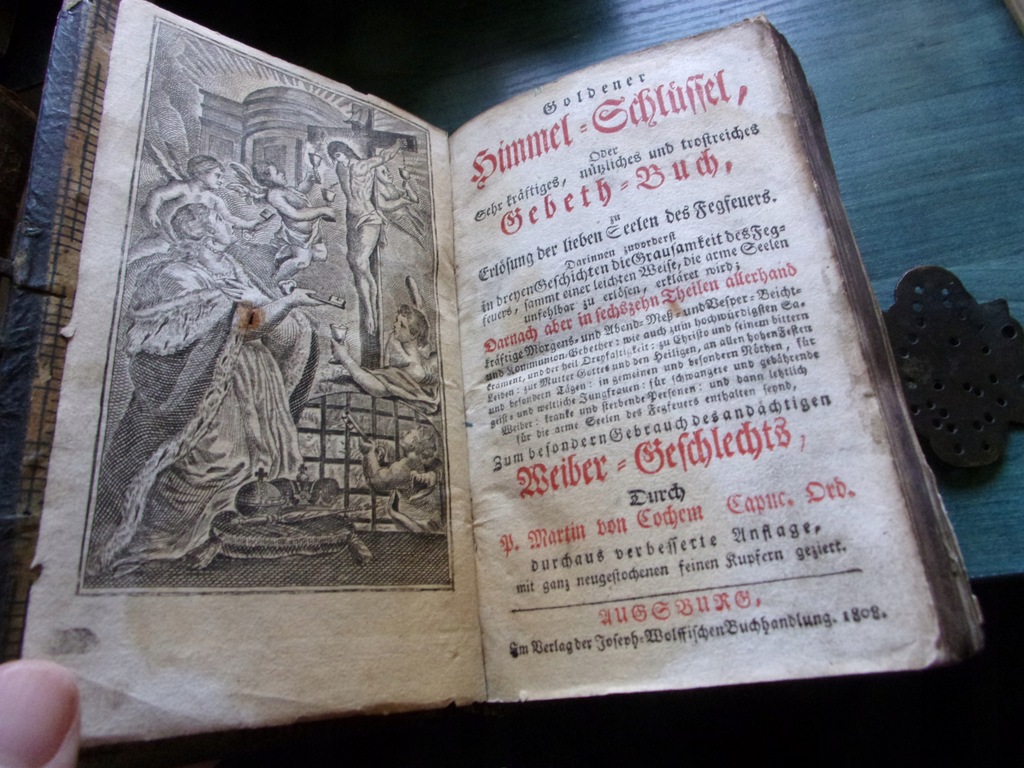 Goldener
Himmel=Schlüssel,
Oder
Sehr kräftiges, nützliches und trostreiches
Gebeth=Buch,
zu
Erlösung der lieben Seelen des Fegfeuers.
Darinnen zuvorderst
in dreyen Geschichten die Grausamkeit des Feg=
feuers, sammt einer leichten Weise, die arme Seelen
unfehlbar zu erlösen, erkläret wird;
Darnach aber in sechszehn Theilen allerhand
kräftige Morgens= und Abend= Meß= und Vesper= Beicht=
und Kommunion=Gebether: wie auch zum hochwürdigsten Sa=
krament, und der heil Dreyfaltigkeit: zu Christo und seinem bittern
Leiden: zur Mutter Gottes und den Heiligen, an allen hohen Festen
und besondern Tägen: in gemeinen und besondern Nöthen, für
geist= und weltliche Jungfrauen: für schwangere und gebährende
Weiber: kranke und sterbende Personen: und dann letzlich
für die arme Seelen des Fegfeuers enthalten seynd,
Zum besondern Gebrauch des andächtigen
Weiber=Geschlechts,
Durch
P. Martin von Cochem Capuc. Ord.
durchaus verbesserte Auflage,
mit ganz neugestochenen feinen Kupfern geziert.
AUGSBURG,
Im Verlag der Joseph=Wolffischen Buchhandlung. 1808.